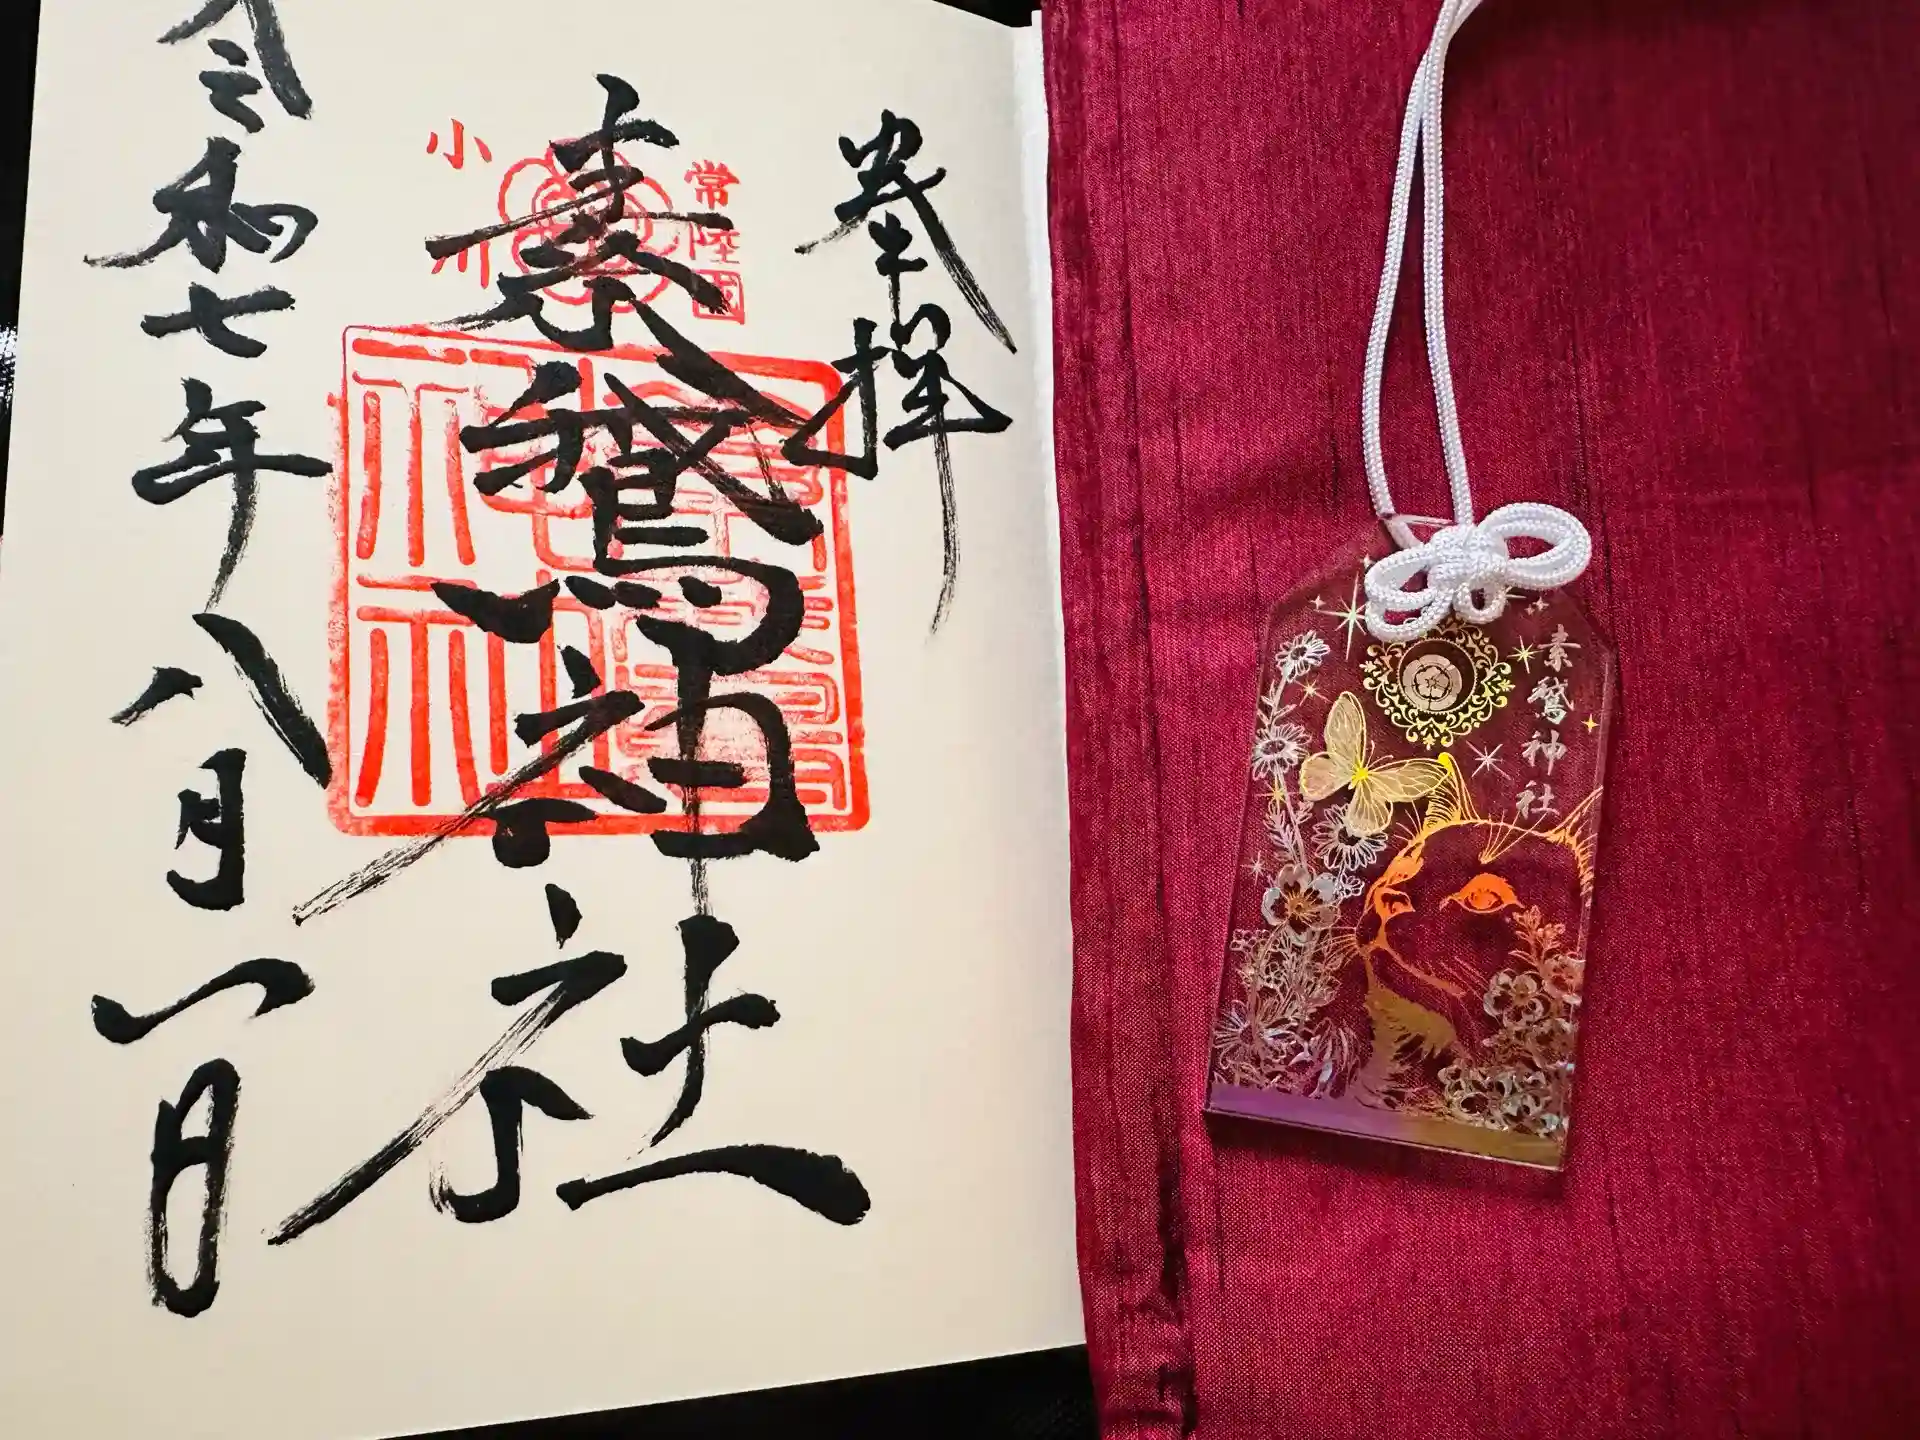 奉拝
常陸国
素鵞神社
小川
令和七年八月一日
素鵞神社